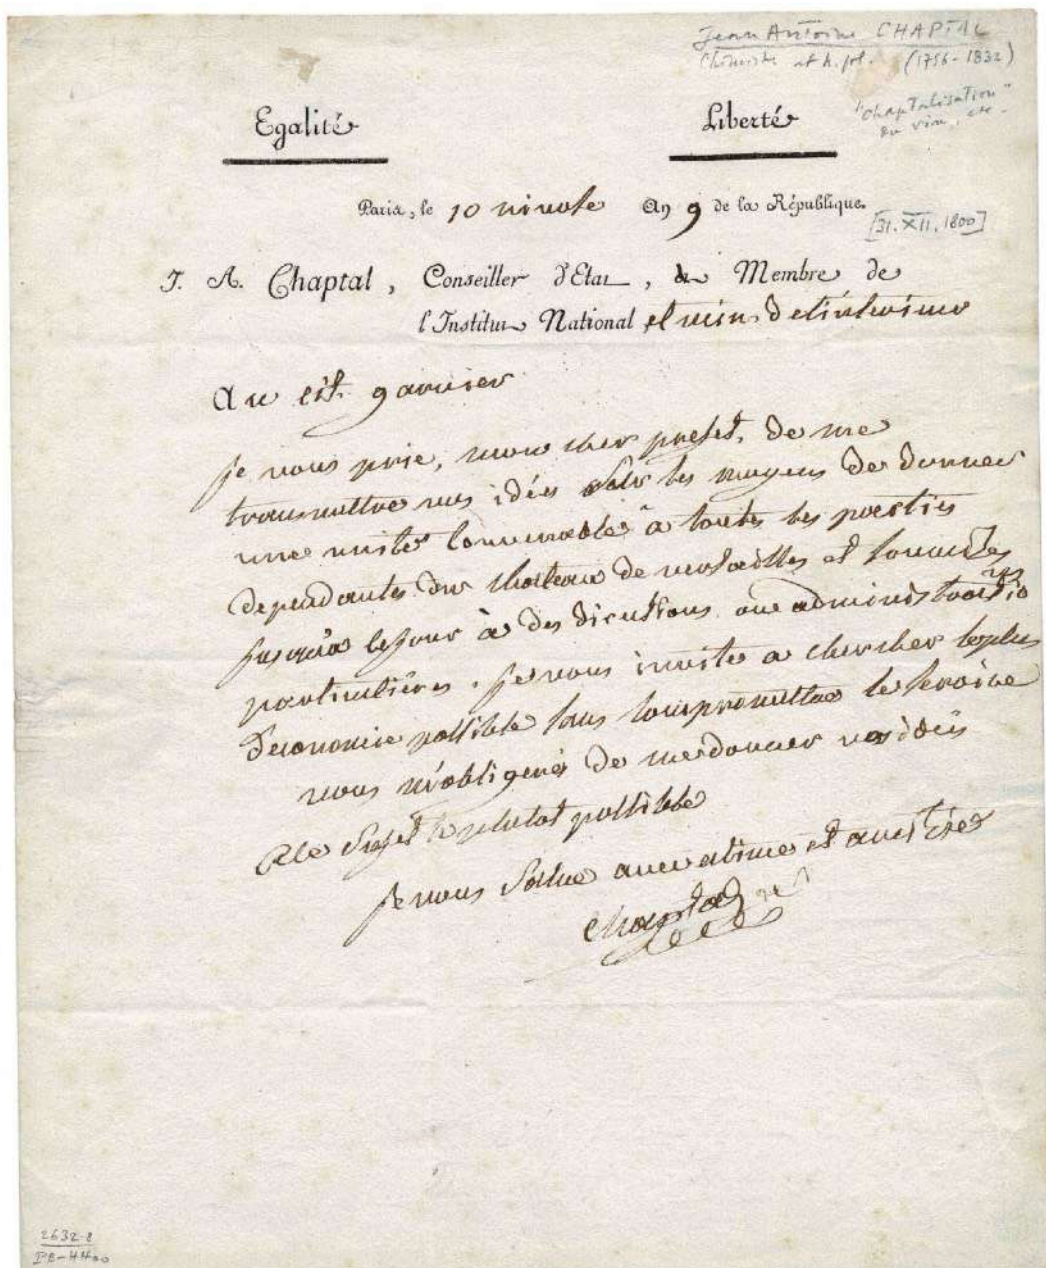 Jean Antoine CHAPTAL
Chimiste et h. pol. (1756-1832)
"chaptalisation"
du vin, etc.
Egalité Liberté
Paris, le 10 nivose An 9 de la République.
[31. XII. 1800]
J. A. Chaptal, Conseiller d'Etat, Membre de
l'Institut National, et min. de l'intérieur
Au cit. garnier
je vous prie, mon cher prefet, de me
transmettre vos idées sur les moyens de donner
une unité convenable à toutes les parties
dependantes du chateau de versailles et soumises
jusqu'à ce jour à des discussions ou administrations
particulières. je vous invite a chercher le plus
d'economie possible sans compromettre le service
vous m'obligerés de me donner vos idées
a ce sujet le plutot possible
je vous salue avec estime et amitiés
Chaptal
2632-8